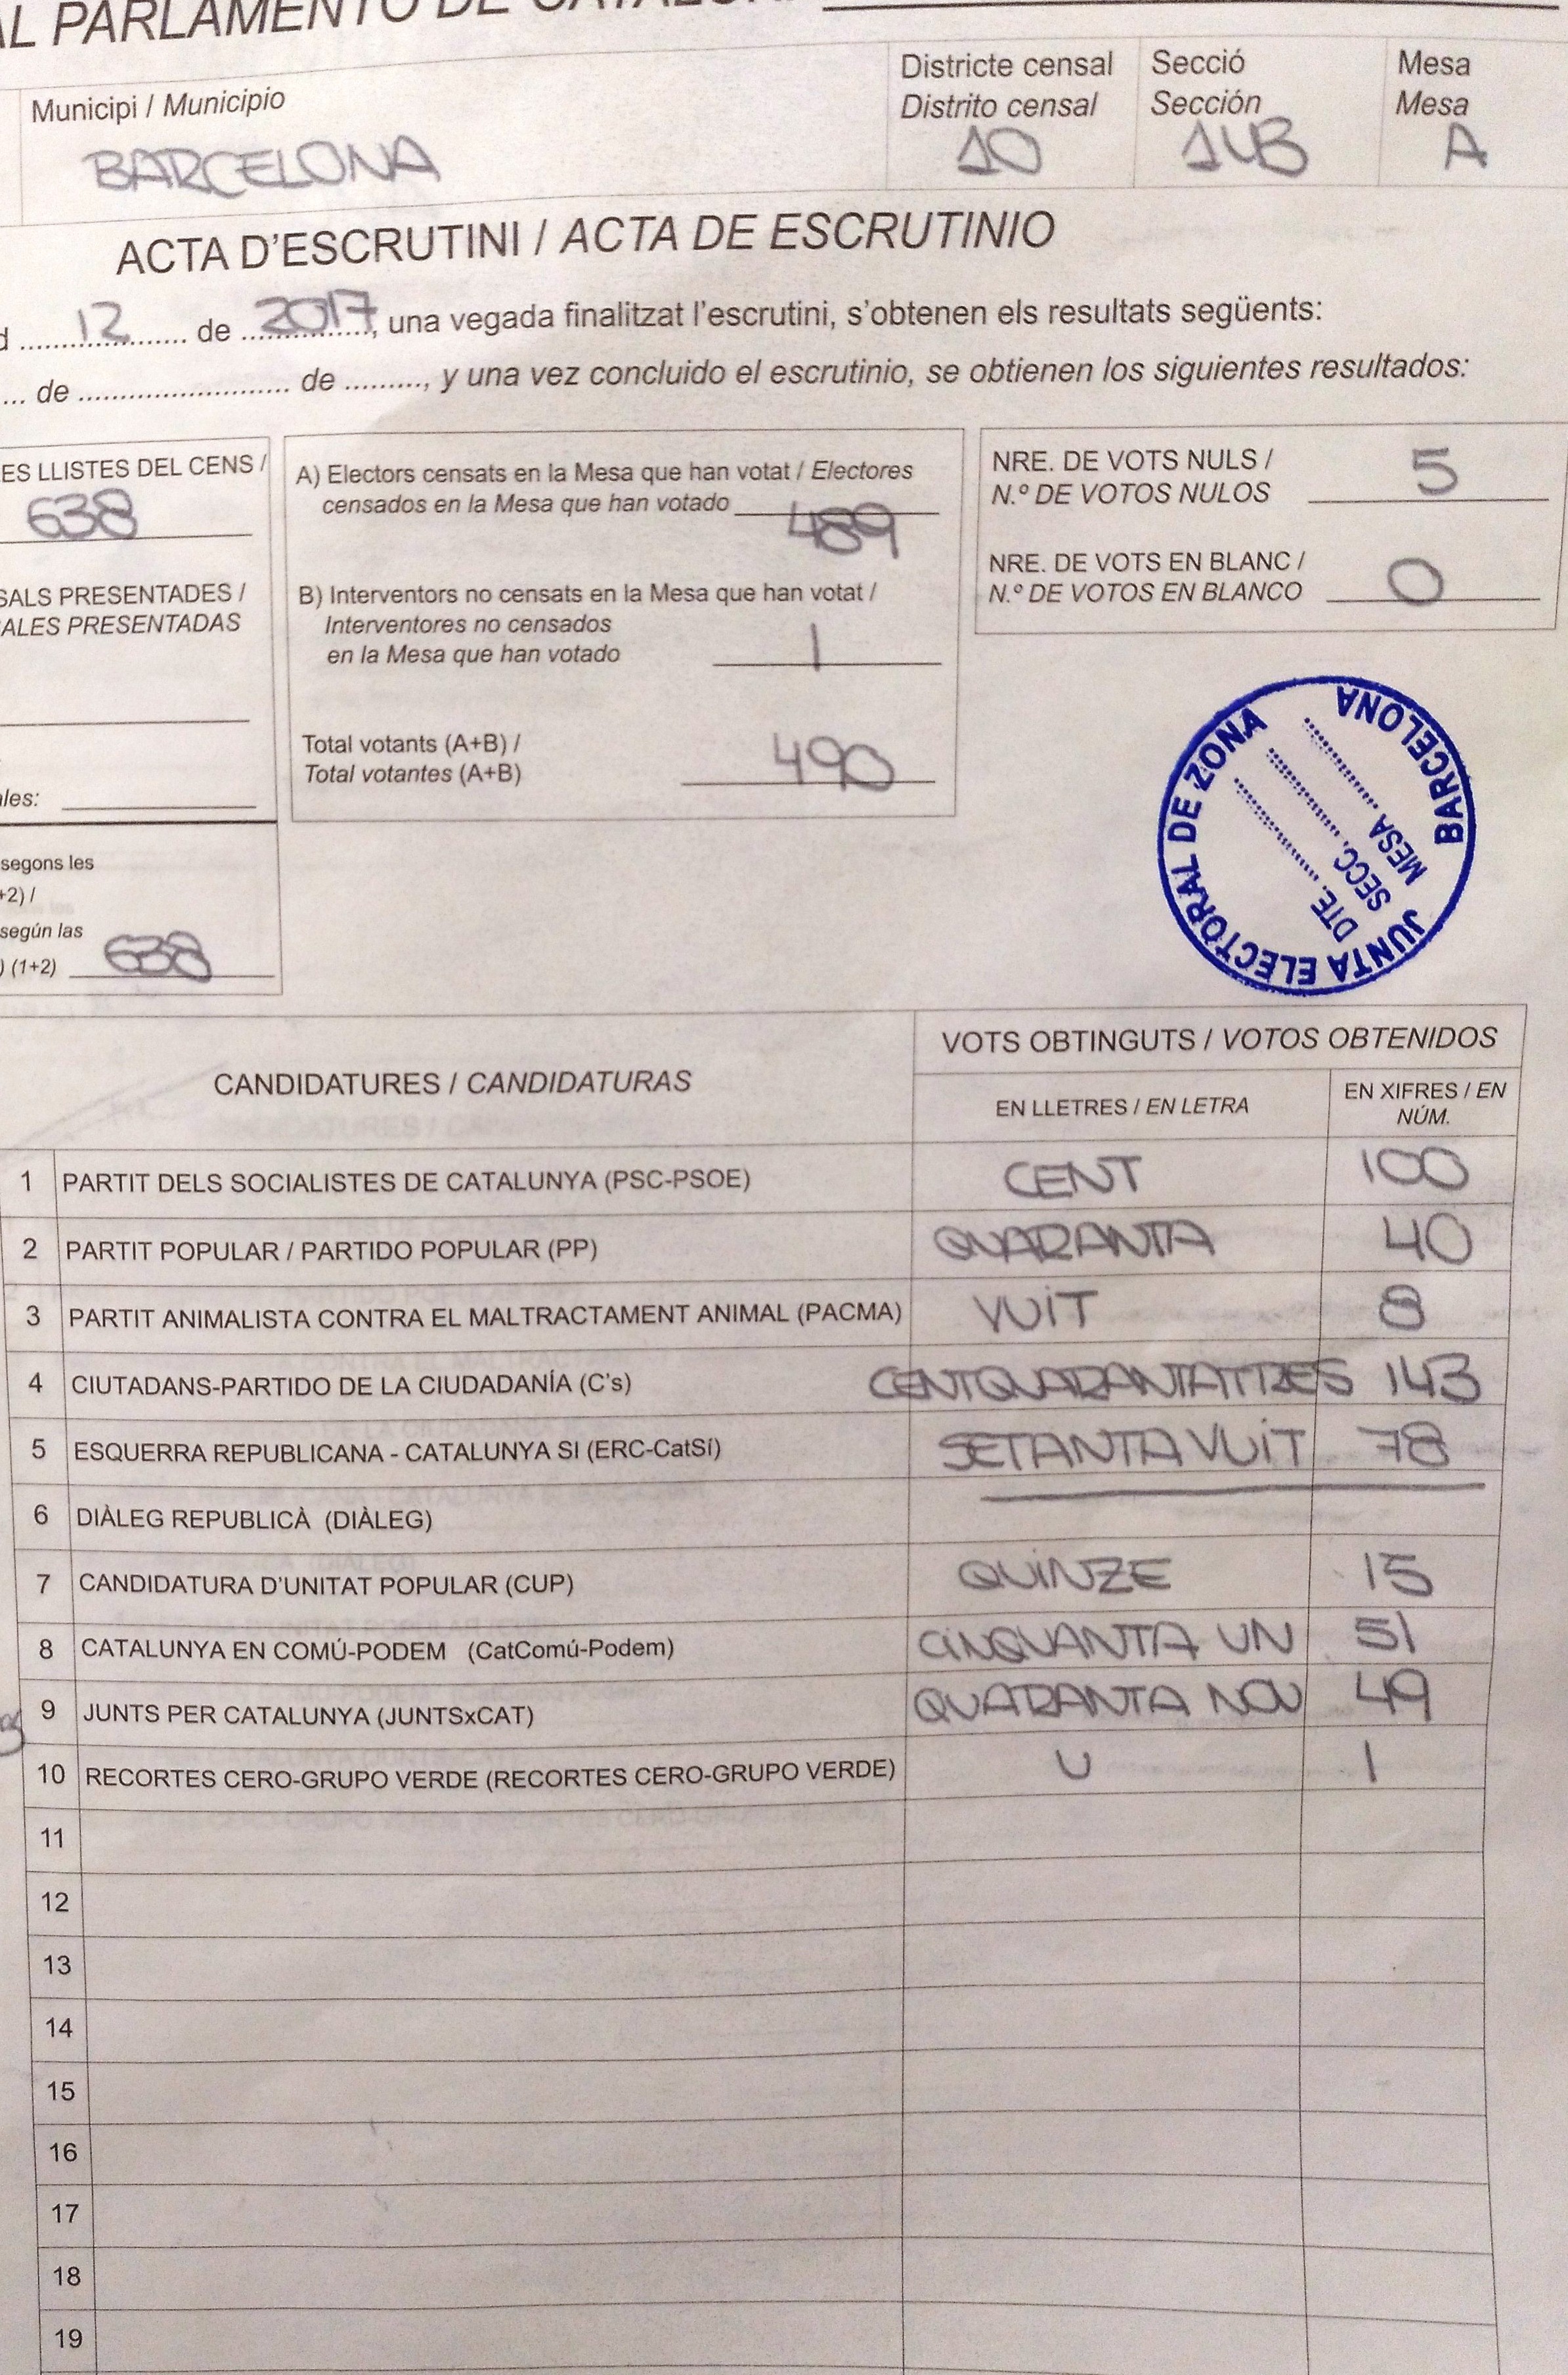 AL PARLAMENTO DE
Municipi / Municipio
BARCELONA
Districte censal
Distrito censal
10
Secció
Sección
143
Mesa
Mesa
A
ACTA D'ESCRUTINI / ACTA DE ESCRUTINIO
12 de 2017, una vegada finalitzat l'escrutini, s'obtenen els resultats següents:
... de ........................... de ........., y una vez concluido el escrutinio, se obtienen los siguientes resultados:
ES LLISTES DEL CENS /
638
SALS PRESENTADES /
ALES PRESENTADAS
ales:
segons les
+2) /
según las
) (1+2) 638
A) Electors censats en la Mesa que han votat / Electores
censados en la Mesa que han votado 489
B) Interventors no censats en la Mesa que han votat /
Interventores no censados
en la Mesa que han votado 1
Total votants (A+B) /
Total votantes (A+B) 490
NRE. DE VOTS NULS /
N.º DE VOTOS NULOS 5
NRE. DE VOTS EN BLANC /
N.º DE VOTOS EN BLANCO 0
JUNTA ELECTORAL DE ZONA
BARCELONA
DTE.
SECC.
MESA
CANDIDATURES / CANDIDATURAS
VOTS OBTINGUTS / VOTOS OBTENIDOS
EN LLETRES / EN LETRA
EN XIFRES / EN
NÚM.
1 PARTIT DELS SOCIALISTES DE CATALUNYA (PSC-PSOE) CENT 100
2 PARTIT POPULAR / PARTIDO POPULAR (PP) QUARANTA 40
3 PARTIT ANIMALISTA CONTRA EL MALTRACTAMENT ANIMAL (PACMA) VUIT 8
4 CIUTADANS-PARTIDO DE LA CIUDADANÍA (C's) CENTQUARANTATRES 143
5 ESQUERRA REPUBLICANA - CATALUNYA SI (ERC-CatSí) SETANTA VUIT 78
6 DIÀLEG REPUBLICÀ (DIÀLEG)
7 CANDIDATURA D'UNITAT POPULAR (CUP) QUINZE 15
8 CATALUNYA EN COMÚ-PODEM (CatComú-Podem) CINQUANTA UN 51
9 JUNTS PER CATALUNYA (JUNTSxCAT) QUARANTA NOU 49
10 RECORTES CERO-GRUPO VERDE (RECORTES CERO-GRUPO VERDE) U 1
11
12
13
14
15
16
17
18
19